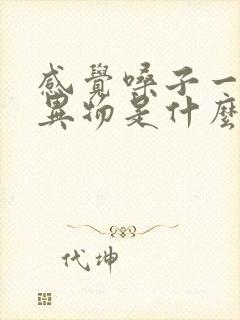 感覺嗓子一
異物是什麼
代坤